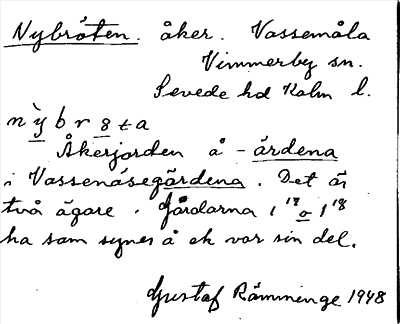 Nybråten. åker. Vassemåla
Vimmerby sn.
Sevede hd Kalm l.
nỳbr8ta
Åkerjorden å - ärdena
i Vassenäsegärdena. Det är
två ägare i gårdarna 1 17 o 1 18
ha sam synes å ek var sin del.
Gustaf Rämminge 1948